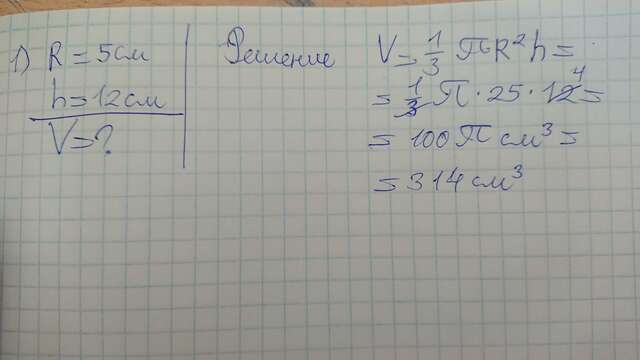 1) R = 5 см
h = 12 см
V = ?
Решение
V = 1/3 πR²h =
= 1/3 π · 25 · 12 4 =
= 100 π см³ =
= 314 см³